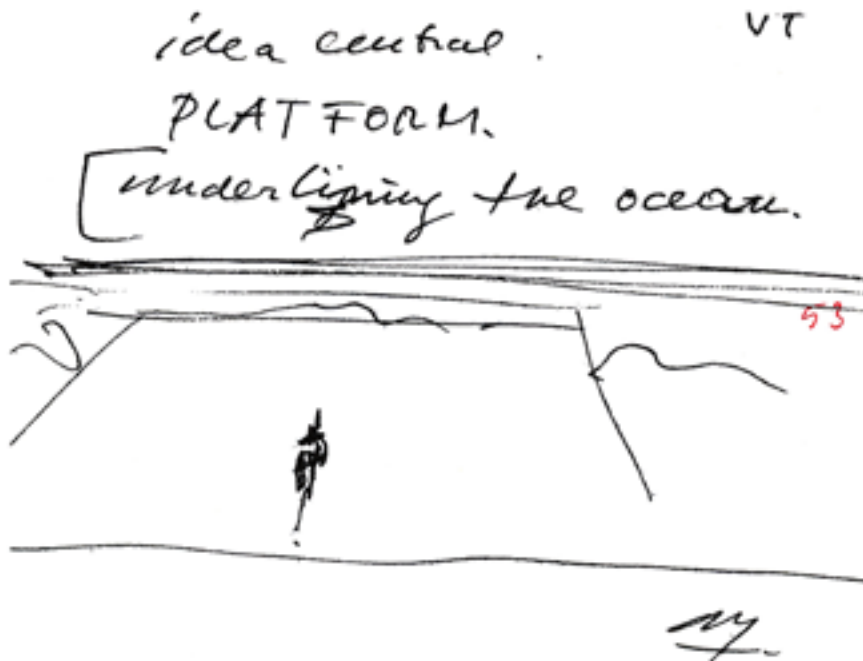 idea central. VT
PLATFORM.
underlining the ocean.
53